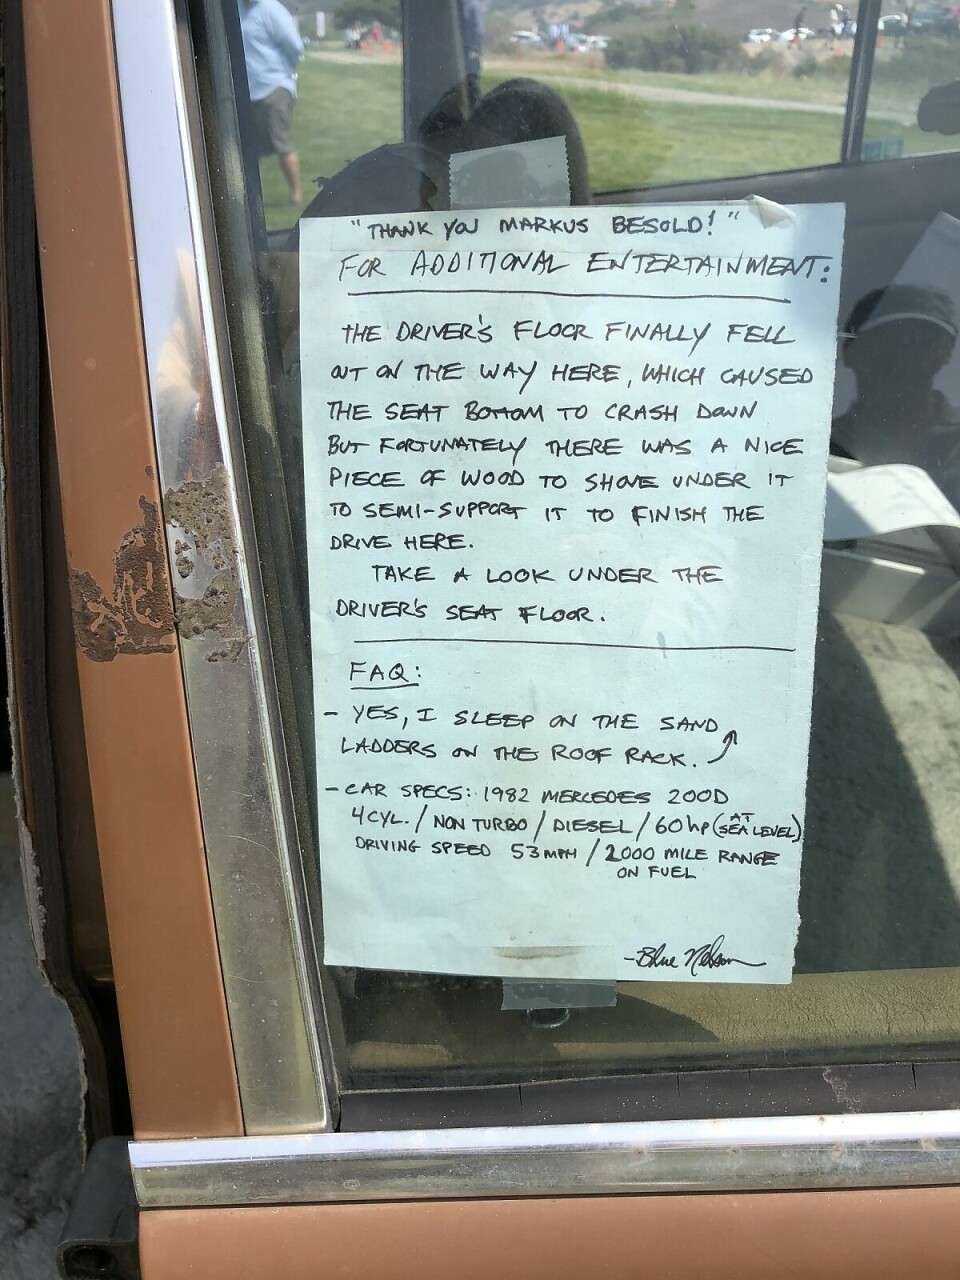 "THANK YOU MARKUS BESOLD!"
FOR ADDITIONAL ENTERTAINMENT:
THE DRIVER'S FLOOR FINALLY FELL
OUT ON THE WAY HERE, WHICH CAUSED
THE SEAT BOTTOM TO CRASH DOWN
BUT FORTUNATELY THERE WAS A NICE
PIECE OF WOOD TO SHOVE UNDER IT
TO SEMI-SUPPORT IT TO FINISH THE
DRIVE HERE.
TAKE A LOOK UNDER THE
DRIVER'S SEAT FLOOR.
FAQ:
- YES, I SLEEP ON THE SAND
LADDERS ON THE ROOF RACK.
- CAR SPECS: 1982 MERCEDES 200D
4CYL. / NON TURBO / DIESEL / 60hp (AT SEA LEVEL)
DRIVING SPEED 53MPH / 2000 MILE RANGE
ON FUEL
- Blue Nelson